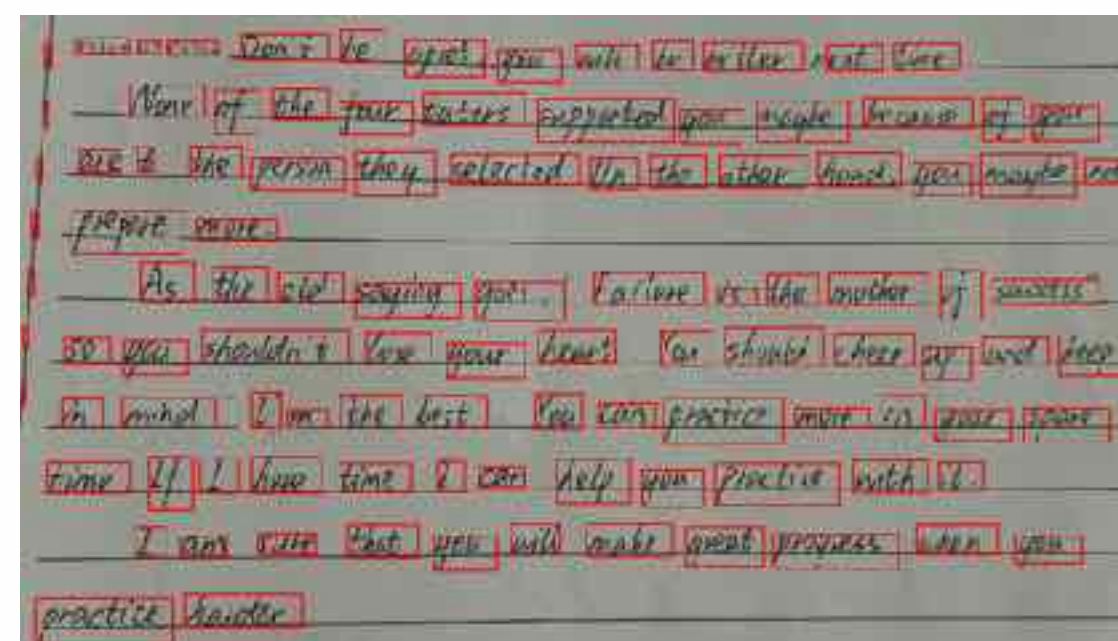 Don't be upset you will be better next time
None of the four raters supported you maybe because of your
the person they selected On the other hand, you maybe not
prepare more.
As the old saying goes. Failure is the mother of success"
so you shouldn't lose your heart You should cheer up and keep
in mind I'm the best You can practice more in your spare
time If I have time I can help you practice with it.
I am sure that you will make great progress when you
practice harder